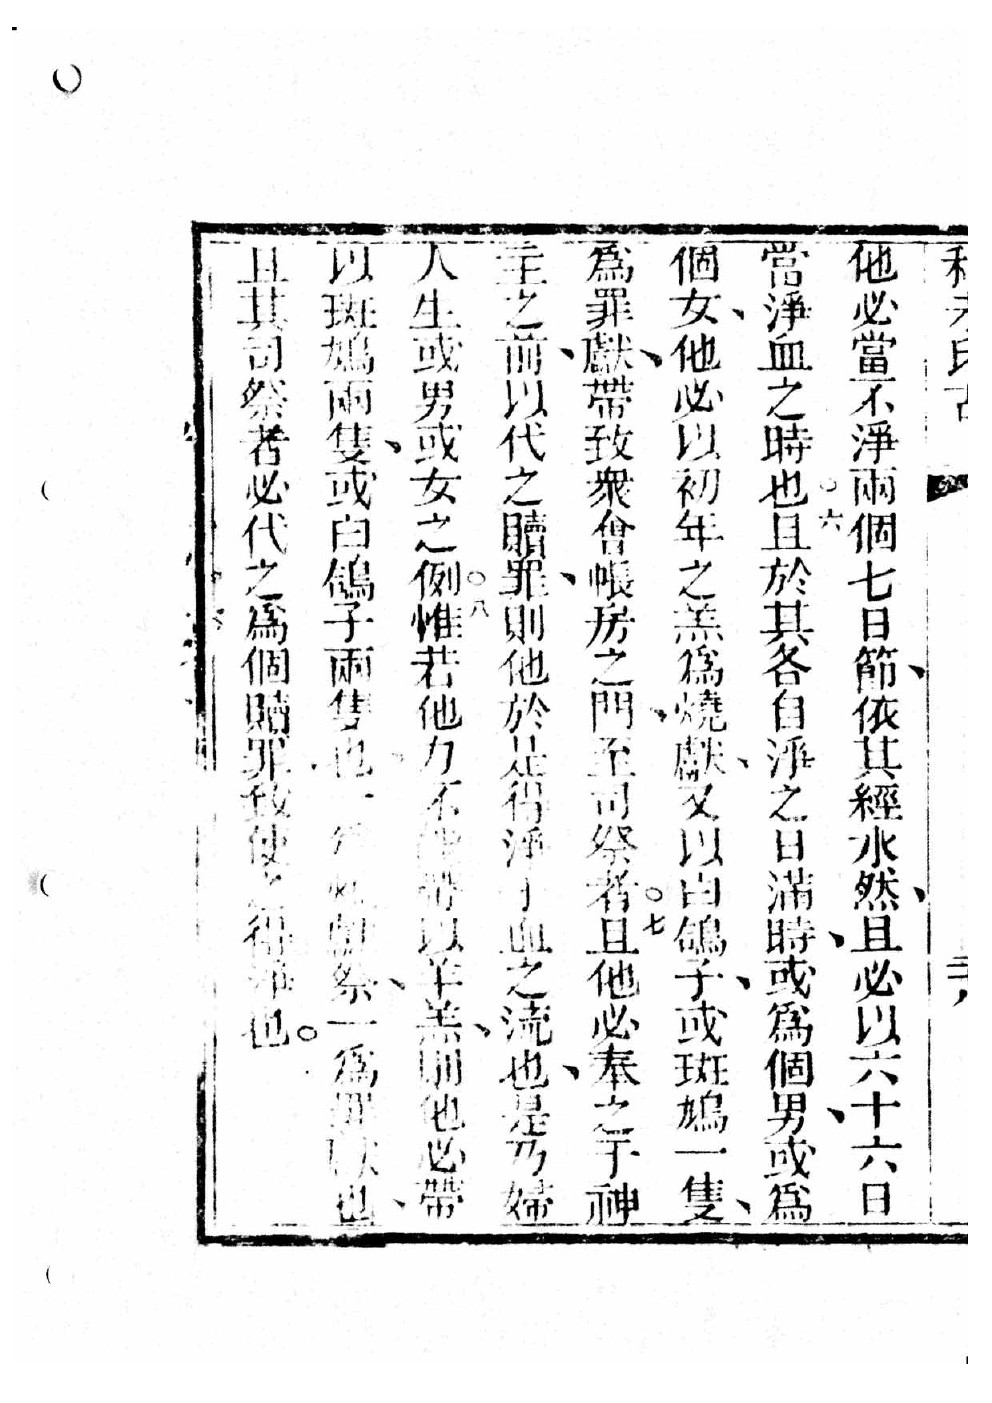 他必當不淨兩個七日節、依其經水然、且必以六十六日
當淨血之時也○六且於其各自淨之日滿時、或為個男、或為
個女、他必以初年之羔為燒獻、又以白鴿子、或斑鳩一隻、
為罪獻、帶致衆會帳房之門、至司祭者○七且他必奉之于神
主之前、以代之贖罪、則他於是得淨于血之流也、是乃婦
人生或男或女之例○八惟若他力不能帶以羊羔、則他必帶
以斑鳩兩隻、或白鴿子兩隻也、一為燒獻祭、一為罪獻也、
且其司祭者必代之為個贖罪致使之得淨也。